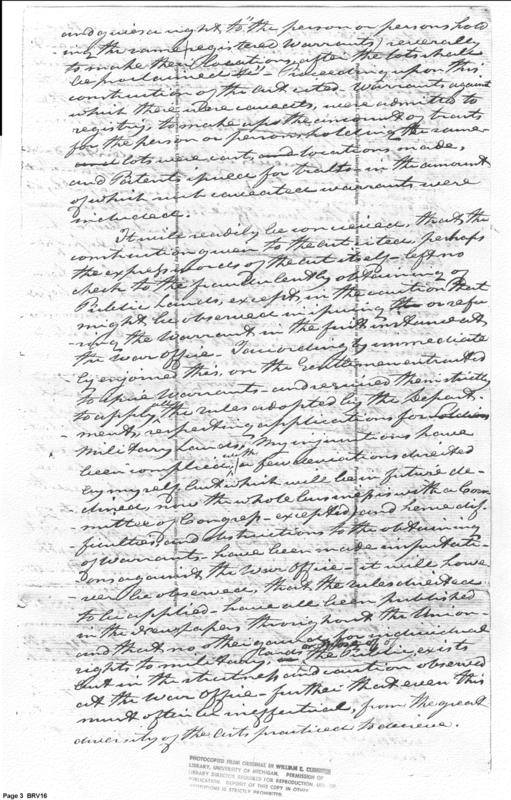 and gives a right to "the person or persons hold
ing the same registered Warrants) severally
to make their locations after the lots shall
be proclaimed &c"— Proceeding upon this
construction of the act cited— Warrants against
which there were caveats, were admitted to
registry, to make up the amount of tracts
for the person or persons holding the same
and lots were cast, and locations made,
and Patents issued for tracts in the amount
of which such caveated warrants were
included.
It will readily be conceived, that the
construction given to the act cited, perhaps
the express words of the act itself— left no
check to the fraudulently obtaining of
Public lands, except in the caution that
might be observed in issuing or refu
sing the Warrant in the first instance at
the War Office— I accordingly immediate
ly enjoined this, on the Gentlemen entrusted
to issue Warrants— and required them strictly
to apply all the rules adopted by the Depart-
ment, respecting applications for
Military lands, My injunctions have
been complied with, a few deviations directed
by myself but which will be in future de-
clined, now the whole business is with a Com
mittee of Congress— excepted, and hence dif-
ficulties, and obstructions to the obtaining
of Warrants— have been made imputati-
ons against the War Office— it will howe
ver be observed, that the rules directed
to be applied— have all been published
in the Newspapers throughout the Union—
and that no other guard for individual
rights to military lands or those of the Public, exists
but in the strictness and caution observed
at the War Office— further that even this
must often be ineffectual, from the great
diversity of the Arts, practised to deceive.
PHOTOCOPIED FROM ORIGINAL IN WILLIAM L. CLEMENTS
LIBRARY, UNIVERSITY OF MICHIGAN. PERMISSION OF
LIBRARY DIRECTOR REQUIRED FOR REPRODUCTION, USE OR
PUBLICATION. DEPOSIT OF THIS COPY IN OTHER
INSTITUTIONS IS STRICTLY PROHIBITED.
Page 3 BRV16